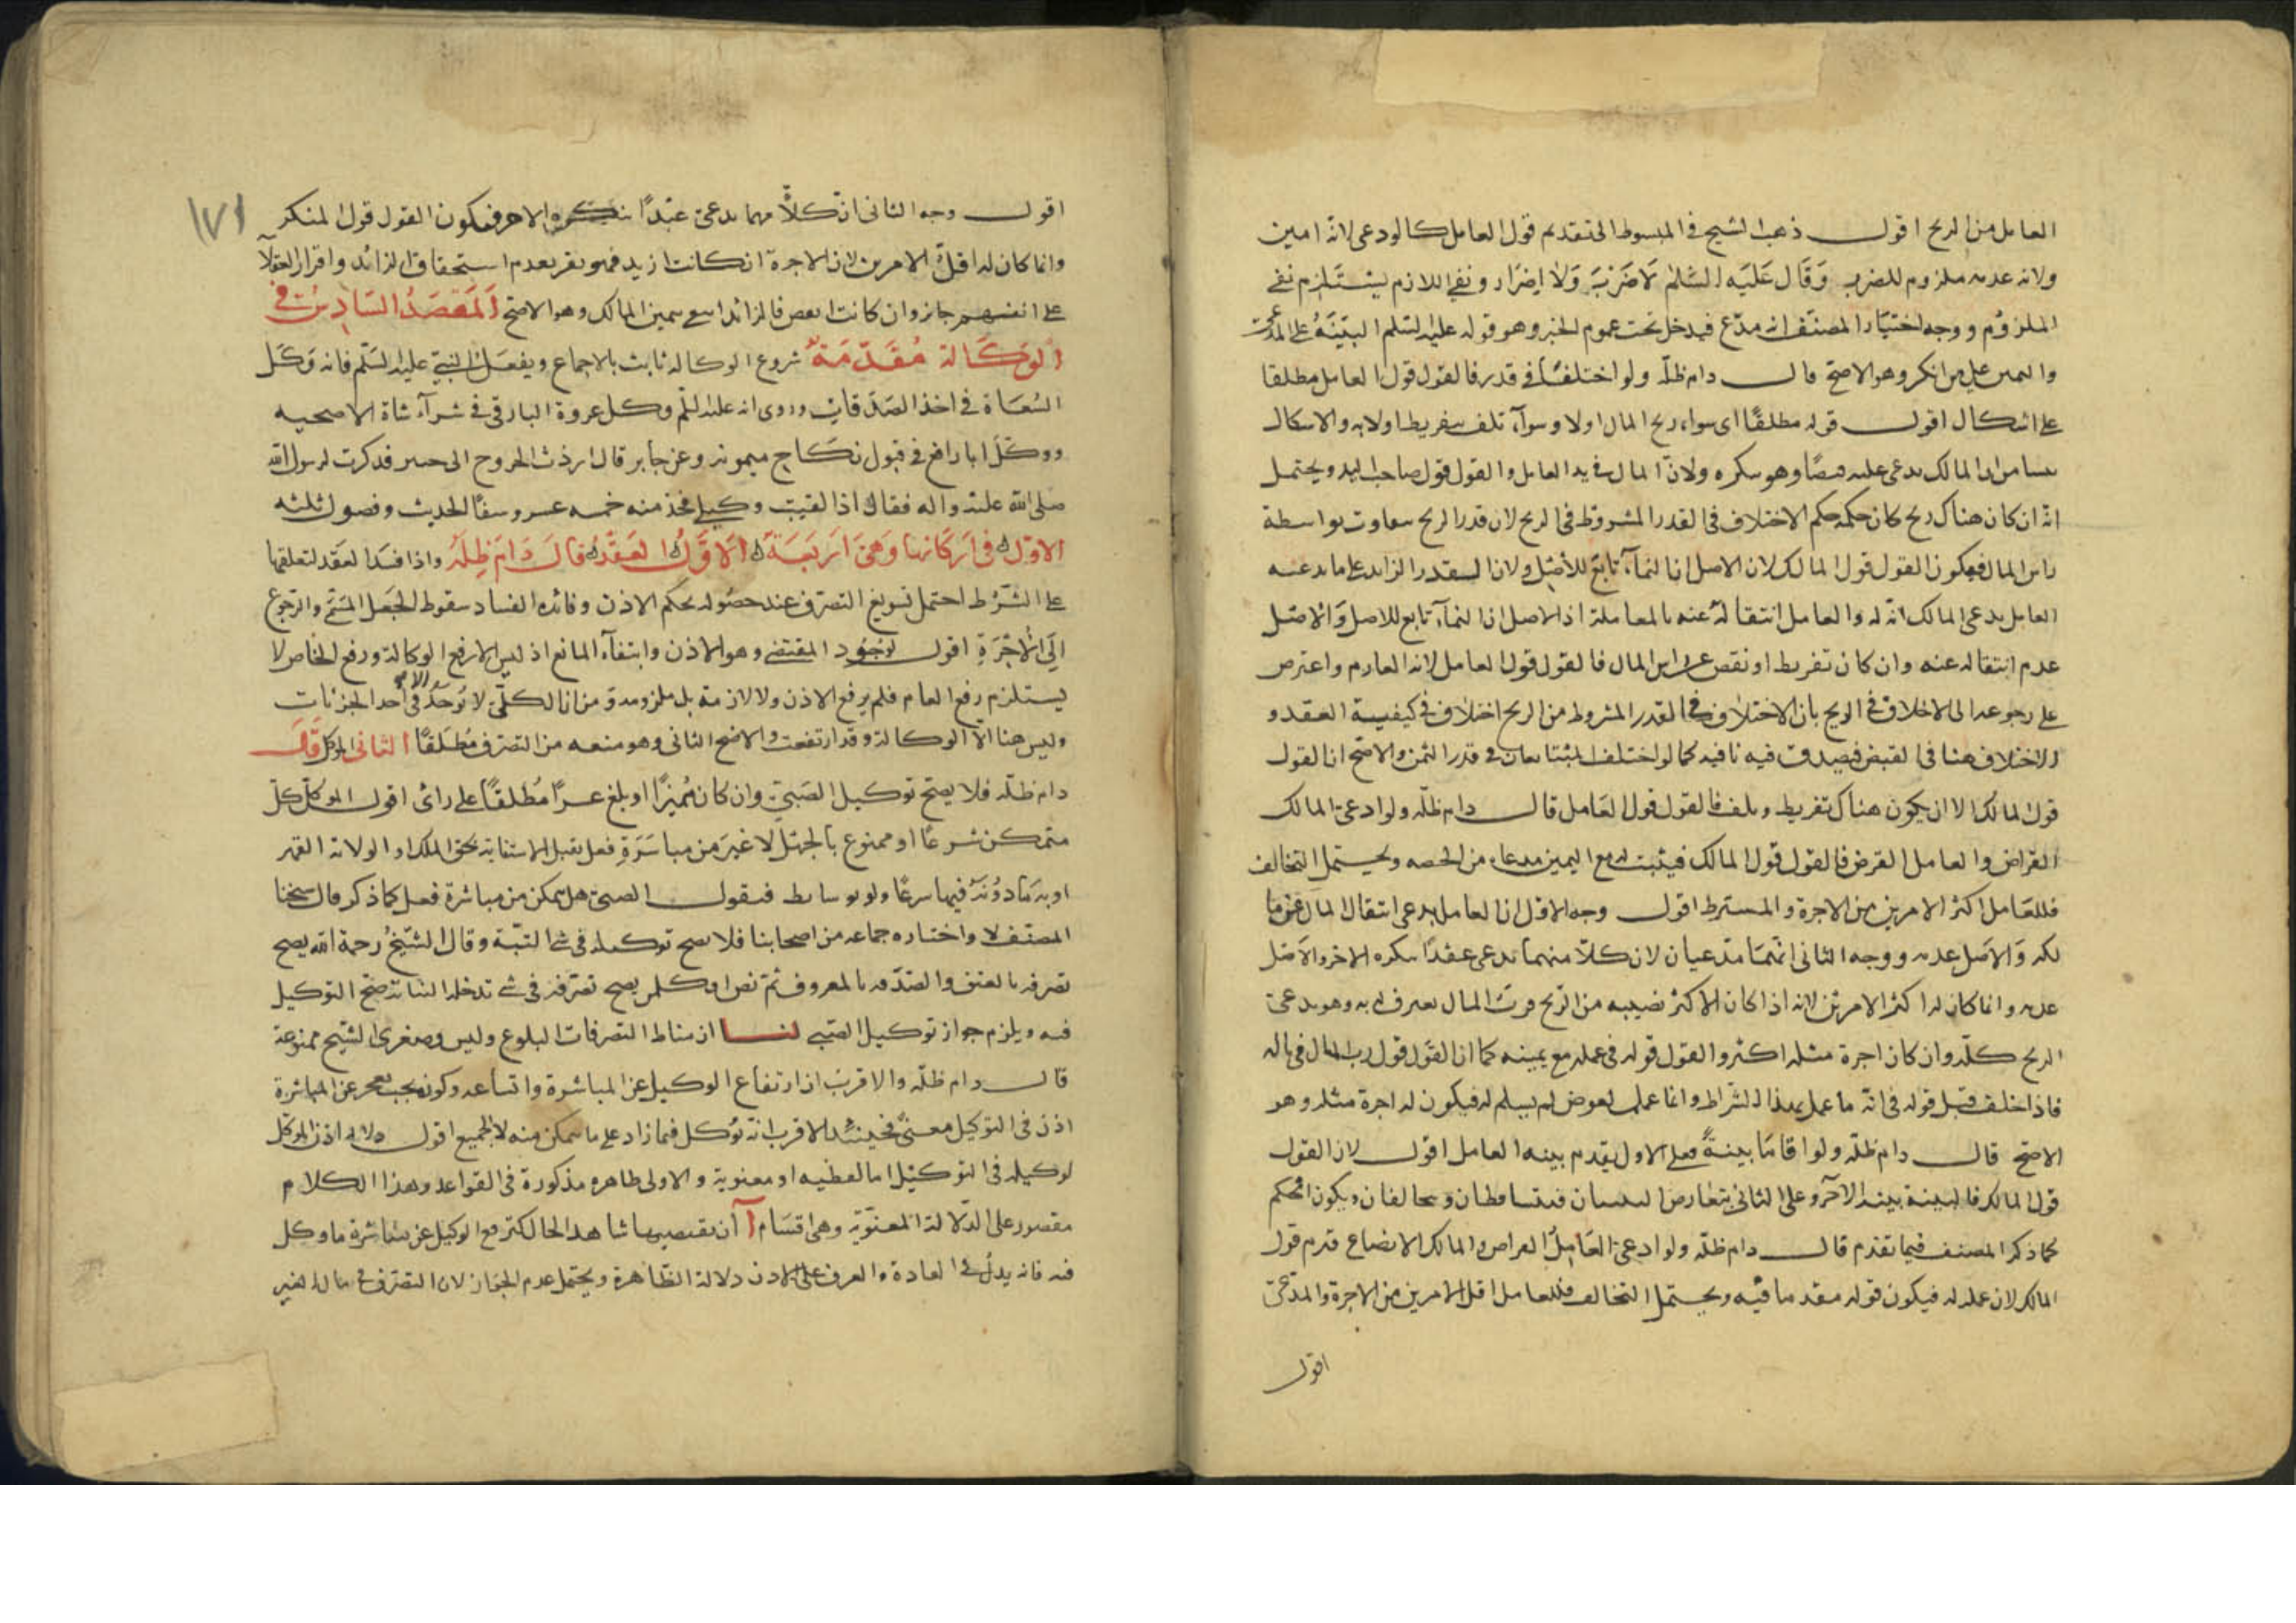 العامل من الربح اقول ذهب الشيخ في المبسوط الى تقديم قول العامل كالودعى لانه امين
ولانه عدمه ملزوم للضرر وقال عليه السلم لا ضرر ولا اضرار ونفى اللازم يستلزم نفى
الملزوم ووجه اختيار المصنف انه مدع فيدخل تحت عموم الخبر وهو قوله عليه السلم البينة على المدعى
واليمين على من انكر وهو الاصح قال دام ظله ولو اختلفا في قدر فالقول قول العامل مطلقا
على اشكال اقول قوله مطلقا اى سواء ربح المال او لا وسواء تلف بتفريط او لا والاشكال
المالك يدعى عليه وهو ينكره ولان المال في يد العامل والقول قول صاحب اليد ويحتمل
انه ان كان هناك ربح كان حكمه حكم الاختلاف في القدر المشروط في الربح لان قدر الربح بواسطة
راس المال فيكون القول قول المالك لان الاصل ان النماء تابع للاصل ولان القدر الزايد على ما يدعيه
العامل يدعى المالك انه له والعامل انتقاله عنه بالمعاملة اذ الاصل ان النماء تابع للاصل والاصل
عدم انتقاله عنه وان كان تفريط او نقص عن راس المال فالقول قول العامل لانه الغارم واعترض
على رجوعه الى الاختلاف في الربح بان الاختلاف في القدر المشروط من الربح اختلاف في كيفية العقد و
الاختلاف هنا في القبض فيصدق فيه نافيه كما لو اختلف المتبايعان في قدر الثمن والاصح ان القول
قول المالك الا ان يكون هناك تفريط وتلف فالقول قول العامل قال دام ظله ولو ادعى المالك
القراض والعامل القرض فالقول قول المالك فيثبت له مع اليمين مدعاه من الحصه ويحتمل التخالف
فللعامل اكثر الامرين من الاجرة والمشترط اقول وجه الاول ان العامل يدعى انتقال المال عن
والاصل عدمه ووجه الثاني انهما مدعيان لان كلا منهما يدعى عقدا ينكره الاخر والاصل
عدمه وانما كان له اكثر الامرين لانه اذا كان الاكثر نصيبه من الربح فرب المال يعترف له به وهو يدعى
الربح كله وان كان اجرة مثله اكثر والقول قوله في عمله مع يمينه كما ان القول قول رب المال في ماله
فاذا خلف قبل قوله في انه ما عمل بهذا الشراط وانما عمل لعوض لم يسلم له فيكون له اجرة مثله وهو
الاصح قال دام ظله ولو اقاما بينة فعلى الاول يقدم بينة العامل اقول لان القول
قول المالك فالبينة بينة الآخر وعلى الثاني يتعارض البينتان فيتساقطان ويتحالفان ويكون الحكم
كما ذكر المصنف فيما تقدم قال دام ظله ولو ادعى العامل القراض والمالك الابضاع قدم قول
المالك لان عمله له فيكون قوله مقدما فيه ويحتمل التخالف فللعامل اقل الامرين من الاجرة والمدعى
اقول
١٧١
اقول وجه الثاني ان كلا منهما يدعى عقدا ينكره الاخر فيكون القول قول المنكر
وانما كان له اقل الامرين لان الاجرة ان كانت ازيد فهو يقر بعدم استحقاق الزائد واقرار العقلاء
على انفسهم جائز وان كانت انقص فالزائد انتفى بيمين المالك وهو الاصح المقصد السادس في
الوكالة مقدمة شروع الوكالة ثابت بالاجماع وبفعل النبي عليه السلم فانه وكل
السعاة في اخذ الصدقات وروى انه عليه السلم وكل عروة البارقي في شرآء شاة الاضحيه
ووكل ابا رافع في قبول نكاح ميمونه وعن جابر قال اردت الخروج الى خيبر فذكرت لرسول الله
صلى الله عليه واله فقال اذا لقيت وكيلي فخذ منه خمسه عشر وسقا الحديث وفصول ثلثه
الاول في اركانها وهى اربعة الاول العقد قال دام ظله واذا فسد العقد لتعلقها
على الشرط احتمل تسويغ التصرف عند حصوله بحكم الاذن وفائدة الفساد سقوط الجعل المسمى والرجوع
الى الاجرة اقول لوجود المقتضى وهو الاذن وانتفاء المانع اذ ليس الا رفع الوكالة ورفع الخاص لا
يستلزم رفع العام فلم يرفع الاذن ولا لازمة بل ملزومه ومن ان الكلى لا يوجد الا في احد الجزئيات
وليس هنا الا الوكالة وقد ارتفعت والاصح الثاني وهو منعه من التصرف مطلقا الثاني الموكل قال
دام ظله فلا يصح توكيل الصبى وان كان مميزا او بلغ عشرا مطلقا على راى اقول الموكل كل
متمكن شرعا او ممنوع بالجهل لا غير من مباشرة فعل يقبل الاستنابة بحق الملك او الولاية القهر
او به مأذونه فيها شرعا ولو بوسايط فنقول الصبى هل يمكن من مباشرة فعل كما ذكر قال شيخنا
المصنف لا واختاره جماعه من اصحابنا فلا يصح توكيله في شئ البتة وقال الشيخ رحمة الله يصح
تصرفه بالعتق والصدقه بالمعروف ثم نص ان كل من يصح تصرفه في شئ تدخله النيابة صح التوكيل
فيه ويلزم جواز توكيل الصبى لنا ان مناط التصرفات البلوغ وليس وصغرى الشيخ ممنوعة
قال دام ظله والاقرب ان ارتفاع الوكيل عن المباشرة واتساعه وكونه بحيث يعجز عن المباشرة
اذن في التوكيل معنى فحينئذ الاقرب انه يوكل فيما زاد على ما يمكن منه لا الجميع اقول دلالة اذن الموكل
لوكيله في التوكيل اما لفظيه او معنوية والاولى ظاهره مذكورة في القواعد وهذا الكلام
مقصور على الدلالة المعنوية وهى اقسام آ ان يقتضيها شاهد الحال كترفع الوكيل عن مباشرة ما وكل
فيه فانه يدل في العادة والعرف على الاذن دلالة الظاهرة ويحتمل عدم الجواز لان التصرف في مال الغير